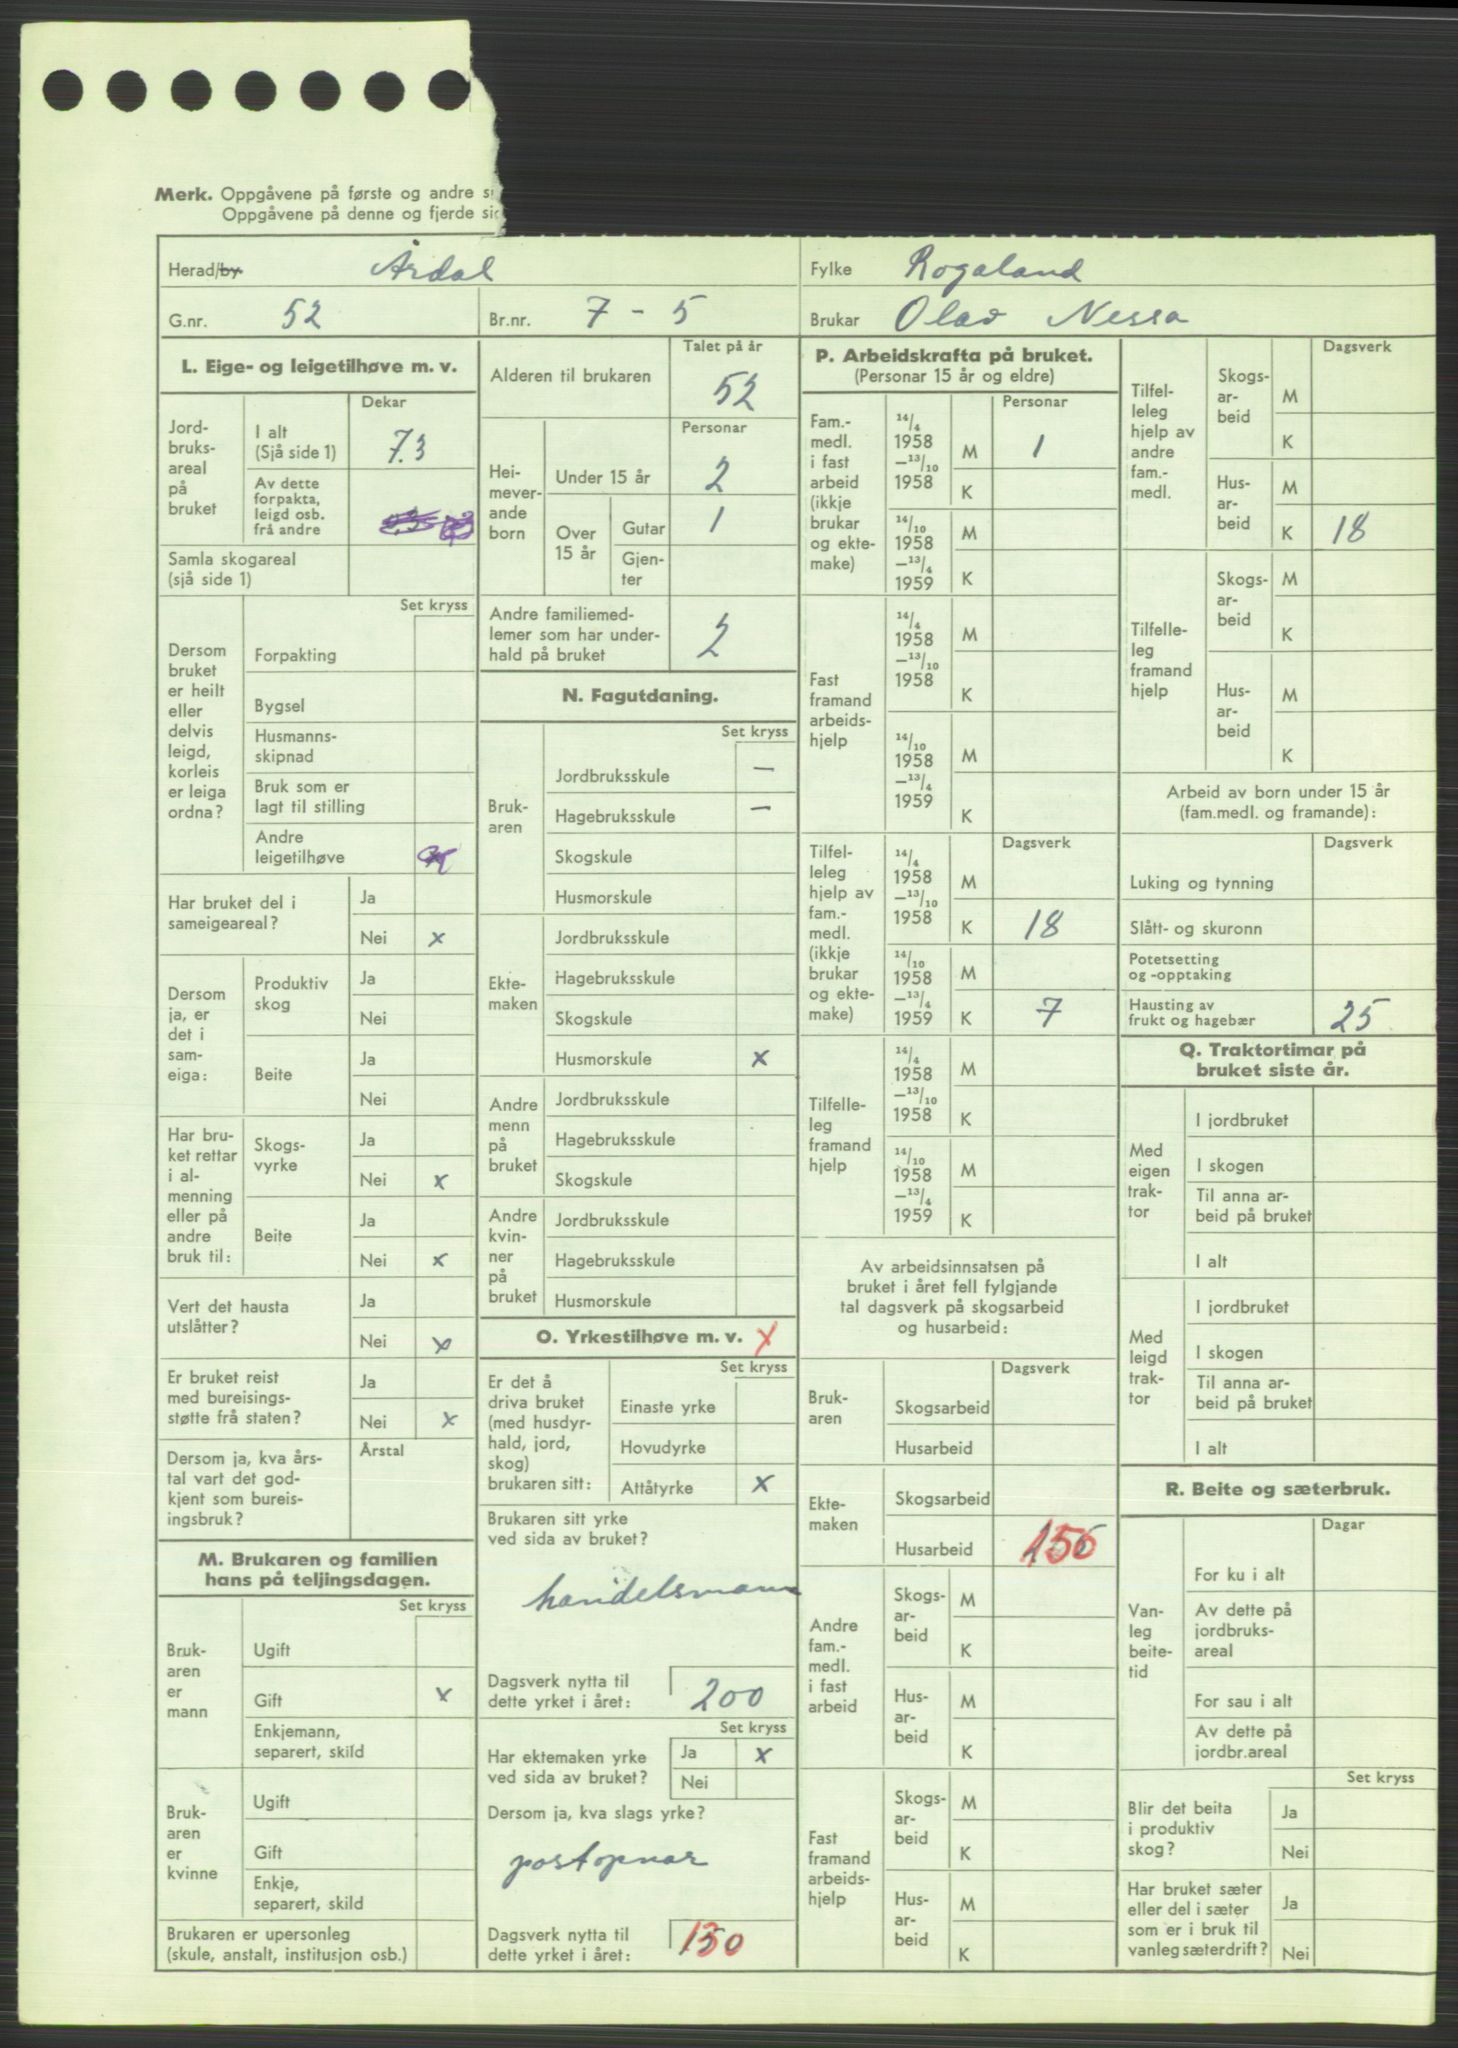 Merk. Oppgåvene på første og andre s
Oppgåvene på denne og fjerde sid
Herad/by Årdal
Fylke Rogaland
G.nr. 52
Br.nr. 7 - 5
Brukar Olav Nessa
L. Eige- og leigetilhøve m. v.
Dekar
Jord-
bruks-
areal
på
bruket
I alt
(Sjå side 1)
7.3
Av dette
forpakta,
leigd osb.
frå andre
Samla skogareal
(sjå side 1)
Set kryss
Dersom
bruket
er heilt
eller
delvis
leigd,
korleis
er leiga
ordna?
Forpakting
Bygsel
Husmanns-
skipnad
Bruk som er
lagt til stilling
Andre
leigetilhøve
Har bruket del i
sameigeareal?
Ja
Nei x
Dersom
ja, er
det i
sam-
eiga:
Produktiv
skog
Ja
Nei
Beite
Ja
Nei
Har bru-
ket rettar
i al-
menning
eller på
andre
bruk til:
Skogs-
vyrke
Ja
Nei x
Beite
Ja
Nei x
Vert det hausta
utslåtter?
Ja
Nei x
Er bruket reist
med bureisings-
støtte frå staten?
Ja
Nei x
Dersom ja, kva års-
tal vart det god-
kjent som bureis-
ingsbruk?
Årstal
M. Brukaren og familien
hans på teljingsdagen.
Set kryss
Bruk-
aren
er
mann
Ugift
Gift x
Enkjemann,
separert, skild
Bruk-
aren
er
kvinne
Ugift
Gift
Enkje,
separert, skild
Brukaren er upersonleg
(skule, anstalt, institusjon osb.)
Talet på år
Alderen til brukaren 52
Personar
Hei-
mever-
ande
born
Under 15 år 2
Over
15 år
Gutar 1
Gjen-
ter
Andre familiemed-
lemer som har under-
hald på bruket
2
N. Fagutdaning.
Set kryss
Bruk-
aren
Jordbruksskule —
Hagebruksskule —
Skogskule
Husmorskule
Ekte-
maken
Jordbruksskule
Hagebruksskule
Skogskule
Husmorskule x
Andre
menn
på
bruket
Jordbruksskule
Hagebruksskule
Skogskule
Andre
kvin-
ner
på
bruket
Jordbruksskule
Hagebruksskule
Husmorskule
O. Yrkestilhøve m. v. x
Set kryss
Er det å
driva bruket
(med husdyr-
hald, jord,
skog)
brukaren sitt:
Einaste yrke
Hovudyrke
Attåtyrke x
Brukaren sitt yrke
ved sida av bruket?
handelsmann
Dagsverk nytta til
dette yrket i året:
200
Set kryss
Har ektemaken yrke
ved sida av bruket?
Ja x
Nei
Dersom ja, kva slags yrke?
postopnar
Dagsverk nytta til
dette yrket i året:
P. Arbeidskrafta på bruket.
(Personar 15 år og eldre)
Personar
Fam.-
medl.
i fast
arbeid
(ikkje
brukar
og ekte-
make)
14/4
1958
—13/10
1958
M 1
K
14/10
1958
—13/4
1959
M
K
Fast
framand
arbeids-
hjelp
14/4
1958
—13/10
1958
M
K
14/10
1958
—13/4
1959
M
K
Dagsverk
Tilfel-
leleg
hjelp av
fam.-
medl.
(ikkje
brukar
og ekte-
make)
14/4
1958
—13/10
1958
M
K 18
14/10
1958
—13/4
1959
M
K 7
Tilfelle-
leg
framand
hjelp
14/4
1958
—13/10
1958
M
K
14/10
1958
—13/4
1959
M
K
Av arbeidsinnsatsen på
bruket i året fell fylgjande
tal dagsverk på skogsarbeid
og husarbeid:
Dagsverk
Bruk-
aren
Skogsarbeid
Husarbeid
Ekte-
maken
Skogsarbeid
Husarbeid
Andre
fam.-
medl.
i fast
arbeid
Skogs-
ar-
beid
M
K
Hus-
ar-
beid
M
K
Fast
framand
arbeids-
hjelp
Skogs-
ar-
beid
M
K
Hus-
ar-
beid
M
K
Dagsverk
Tilfel-
leleg
hjelp av
andre
fam.-
medl.
Skogs-
ar-
beid
M
K
Hus-
ar-
beid
M
K 18
Tilfelle-
leg
framand
hjelp
Skogs-
ar-
beid
M
K
Hus-
ar-
beid
M
K
Arbeid av born under 15 år
(fam.medl. og framande):
Dagsverk
Luking og tynning
Slått- og skuronn
Potetsetting
og -opptaking
Hausting av
frukt og hagebær
25
Q. Traktortimar på
bruket siste år.
Med
eigen
trak-
tor
I jordbruket
I skogen
Til anna ar-
beid på bruket
I alt
Med
leigd
trak-
tor
I jordbruket
I skogen
Til anna ar-
beid på bruket
I alt
R. Beite og sæterbruk.
Dagar
Van-
leg
beite-
tid
For ku i alt
Av dette på
jordbruks-
areal
For sau i alt
Av dette på
jordbr.areal
Set kryss
Blir det beita
i produktiv
skog?
Ja
Nei
Har bruket sæter
eller del i sæter
som er i bruk til
vanleg sæterdrift?
Ja
Nei